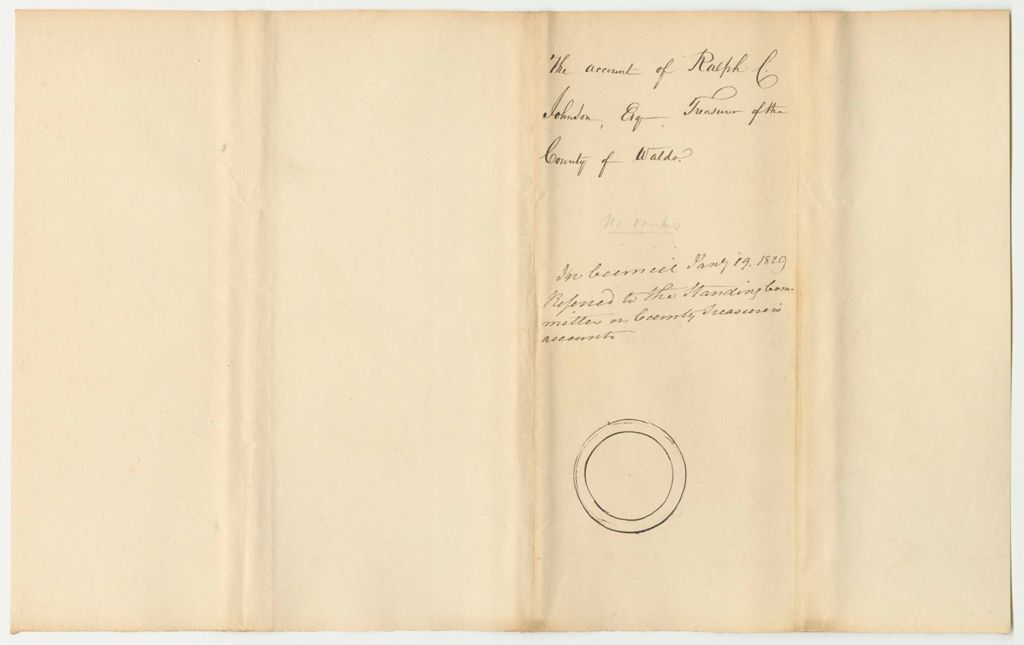 The account of Ralph C.
Johnson, Esq. Treasurer of the
County of Waldo.
In Council Jany 19. 1829
Referred to the Standing Com-
mittee on County Treasurer's
accounts